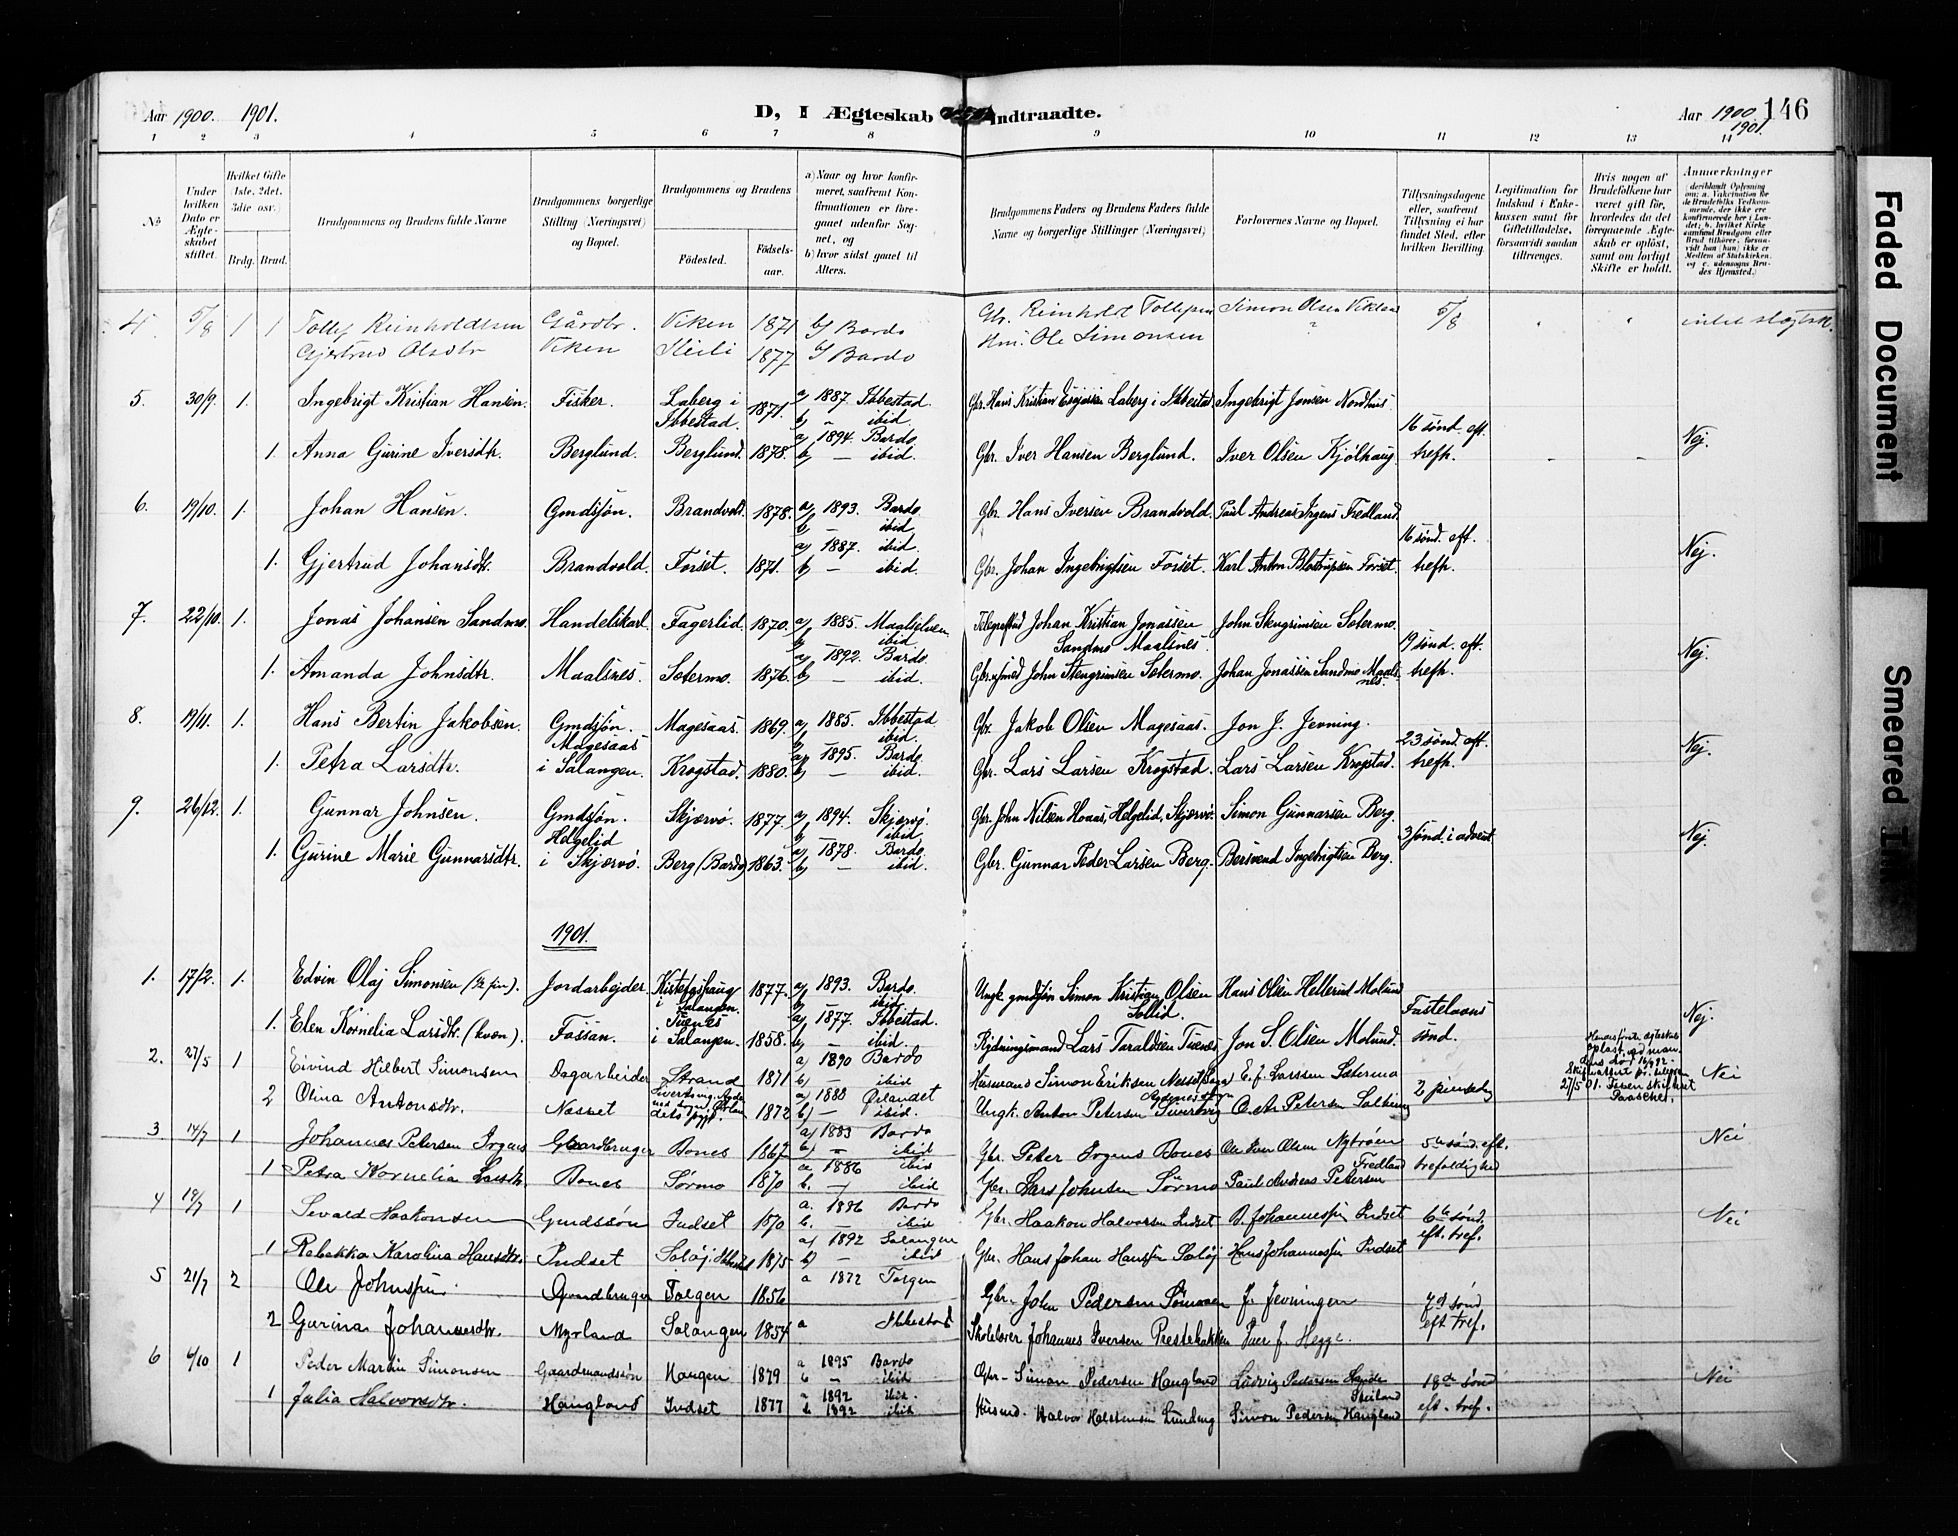 Aar 1900. 1901. D, I Ægteskab Indtraadte. Aar 1900 1901. 146
1 2 3 4 5 6 7 8 9 10 11 12 13 14
No
Under hvilken Dato er Ægteskabet stiftet.
Hvilket Gifte 1ste, 2det, 3die osv.
Brdg. Brud.
Brudgommens og Brudens fulde Navne
Brudgommens borgerlige Stilling (Næringsvei) og Bopæl.
Brudgommens og Brudens
Fødested. Fødsels-aar.
a) Naar og hvor konfirmeret, saafremt Konfirmationen er foregaaet udenfor Sognet, og
b) hvor sidst gaaet til Alters.
Brudgommens Faders og Brudens Faders fulde Navne og borgerlige Stillinger (Næringsvei)
Forlovernes Navne og Bopæl.
Tillysningsdagene eller, saafremt Tillysning ei har fundet Sted, efter hvilken Bevilling.
Legitimation for Indskud i Enkekassen samt for Giftetilladelse, forsaavidt saadan tiltrænges.
Hvis nogen af Brudefolkene har været gift før, hvorledes da det foregaaende Ægteskab er opløst, samt om lovligt Skifte er holdt.
Anmærkninger
(deriblandt Oplysning om: a. Vakcination for de Brudefolks Vedkommende, der ikke ere konfirmerede her i Landet; b. hvilket Kirkesamfund Brudgom eller Brud tilhører, forsaavidt han (hun) ikke er Medlem af Statskirken, og c. udensogns Brudes Hjemsted.)
4. 5/8 1 1 Tollef Reinholdtsen Gårdbr. Viken 1871 b) Bardo Gbr. Reinholdt Tollefsen Simon Olsen Viktan 5/8 " " intet slægtsk.
Gjertrud Olsdtr Viken Steili 1877 b) Bardo Ole Simonsen
5. 30/9. 1. Ingebrigt Kristian Hansen. Fisker. Laberg i Ibbestad. 1871. a) 1887. Ibbestad. b) - ibid Gbr. Hans Kristian Laberg i Ibbestad Ingebrigt Jonsen Nordhus
16 sønd. eft.
1. Anna Gurine Iversdtr. Berglund. Berglund. 1878. a) 1894. Bardo b) - ibid. Gbr. Iver Hansen Berglund. Iver Olsen Kjölhaug. trefh. - - Nej.
6. 19/10. 1. Johan Hansen. Gmdsjøn. Brandvold. 1878. a) 1893. Bardo b) - ibid Gbr. Hans Iversen Brandvold. Paul Andreas Irgens Fredland.
16 sønd. eft.
1. Gjertrud Johansdtr. Brandvold. Forset. 1871. a) 1887. ibid. b) - ibid. Gbr. Johan Ingebrigtsen Forset. Karl Anton Forset. trefh. Nej.
7. 22/10. 1. Jonas Johansen Sandmo. Handelskarl. Fagerlid. 1870. a) 1885. Maalselven b) - ibid. Johan Kristian Jonassen Sandmo Maalsnes. John Stengrimsen Setermo.
19 sønd. eft.
1. Amanda Johnsdtr. Maalsnes. Setermo. 1876. a) 1892. Bardo b) - ibid. John Stengrimsen Setermo. Johan Jonassen Sandmo Maalsnes. trefh. Nej.
8. 19/11. 1. Hans Bertin Jakobsen. Gmdsjøn. Magesaas 1869. a) 1885. Ibbestad b) - ibid. Gbr. Jakob Olsen Magesaas. Jon J. Jevning.
Magesaas 23 sønd. eft.
1. Petra Larsdtr. i Salangen. Krogstad. 1880. a) 1895. Bardo b) - ibid. Gbr. Lars Larsen Krogstad. Lars Larsen Krogstad. trefh. Nej.
9. 26/12. 1. Gunnar Johnsen. Gmdsjøn. Skjærvø. 1877. a) 1894. Skjærvø. b) - ibid Gbr. John Nilsen Hoaas, Helgelid, Skjærvø. Simon Gunnarsen Berg.
Helgelid 3 sønd. i advent
1. Gurine Marie Gunnarsdtr. i Skjærvø. Berg (Bardo) 1863. a) 1878. Bardo b) - ibid. Gbr. Gunnar Peder Larsen Berg. Bersvend Ingebrigtsen Berg. Nej.
1901.
1. 17/2. 1. Edvin Olaj Simonsen Jordarbejder. i Salangen. 1877. a) 1893. Bardo. b) - ibid Ungk. gmdsjøn Simon Kristian Olsen Sollid. Hans Olsen Hellerud Molund
Fastelavns
1. Elen Kornelia Larsdtr. (kvæn). Fossan. Tuenes i Salangen. 1858. a) 1877. Ibbestad. b) - ibid. Rydningsmand Lars Taraldsen Tuenes Jon S. Olsen Molund. sønd. Nej.
2. 27/5 1 Eivind Hilbert Simonsen Dagarbeider Strand 1871 a) 1890 Bardo b) - ibid Husmand Simon Eriksen Nesset E. J. Larssen Sætermo 2 pinsedag Nei
2 Olina Antonsdtr. Nesset 1872 a) 1888 Ørlandet b) - ibid. Ungk. Anton Petersen Sivertvig O. A. Petersen
3 14/7 1 Johannes Petersen Irgens Gaardbruger Bones 1867 a) 1883 Bardo b) - ibid Gbr. Peter Irgens Bones Ole Iver Olsen Nytrøen 5te sønd. eft.
1 Petra Kornelia Larsdtr. Bones Sørmo 1870 a 1886 ibid b. - ibid Gbr. Lars Johnsen Sörmo Paul Andreas Petersen Fredland trefoldighed Nei
4 19/7 1 Sevald Haakonsen Gmdssøn Indset 1870 a. 1886 Bardo b. - ibid Gbr. Haakon Halvorsen Indset Johannessen Indset 6te sønd. Nei
1 Rebekka Karolina Hansdtr. Indset Soløj. Ibbestad 1875 a) 1892 Salangen b) - ibid Gbr. Hans Johan Hanssen Soløj Hans Johannessen Indset eft. tref.
5 21/7 2 Ole Johnssen. Gaardbruger Tolgen 1856 a 1872 Tolgen Gbr. John Pedersen J. Jevningen 7d sønd
2 Gurina Johannesdtr. Myrland Salangen 1854 a Ibbestad Skolelærer Johannes Iversen Prestebakken Peer J. Hegge. eft tref.
6 6/10 1 Peder Martin Simonsen Gaardmandssön Haugen 1879 a 1895 Bardo b - ibid Gbr. Simon Pedersen Haugland Ludvig Pedersen 18de sønd Nei
1 Julia Halvorsdtr. Haugland Indset 1877 a 1892 ibid. b 1892 ibid Husmd. Halvor Halstensen Lundeng Simon Pedersen Haugland eft. tref.
Faded Document
Smeared Ink